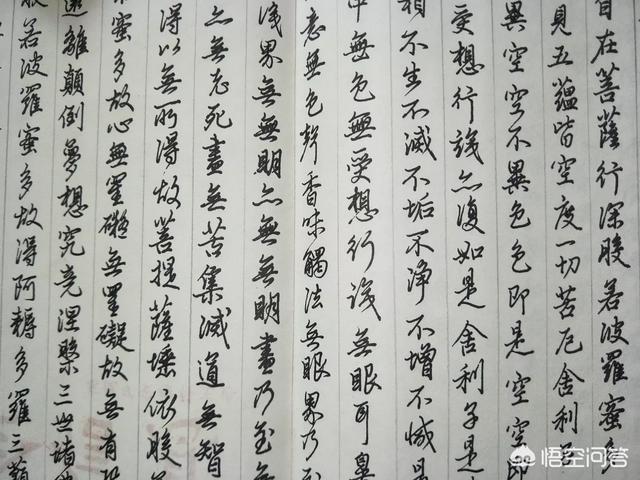 自在菩薩行深般若波羅蜜多
見五蘊皆空度一切苦厄舍利子
異空空不異色色即是空空即
受想行識亦復如是舍利子是
相不生不滅不垢不淨不增不減是
中無色無受想行識無眼耳鼻
意無色聲香味觸法無眼界乃至
識界無無明亦無無明盡乃至無
亦無老死盡無苦集滅道無智
得以無所得故菩提薩埵依般若
蜜多故心無罣礙無罣礙故無有恐
遠離顛倒夢想究竟涅槃三世諸佛
般若波羅蜜多故得阿耨多羅三藐
悟空问答